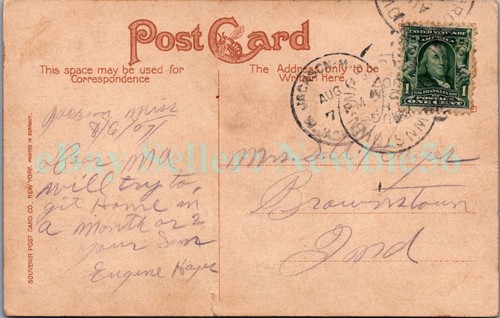 Post Card
This space may be used for
Correspondence
The Address Only to be
Written Here
UNITED STATES OF AMERICA
FRANKLIN
POSTAGE
ONE CENT
1
JACKSON
AUG
7
SOUVENIR POST CARD CO., NEW YORK. PRINTED IN GERMANY.
Jackson Miss
8/6/07
Dear Ma
will try to
git Home in
a Month or 2
your Son
Eugene
Mrs
Brownstown
Ind
eBay Seller: Newbie56